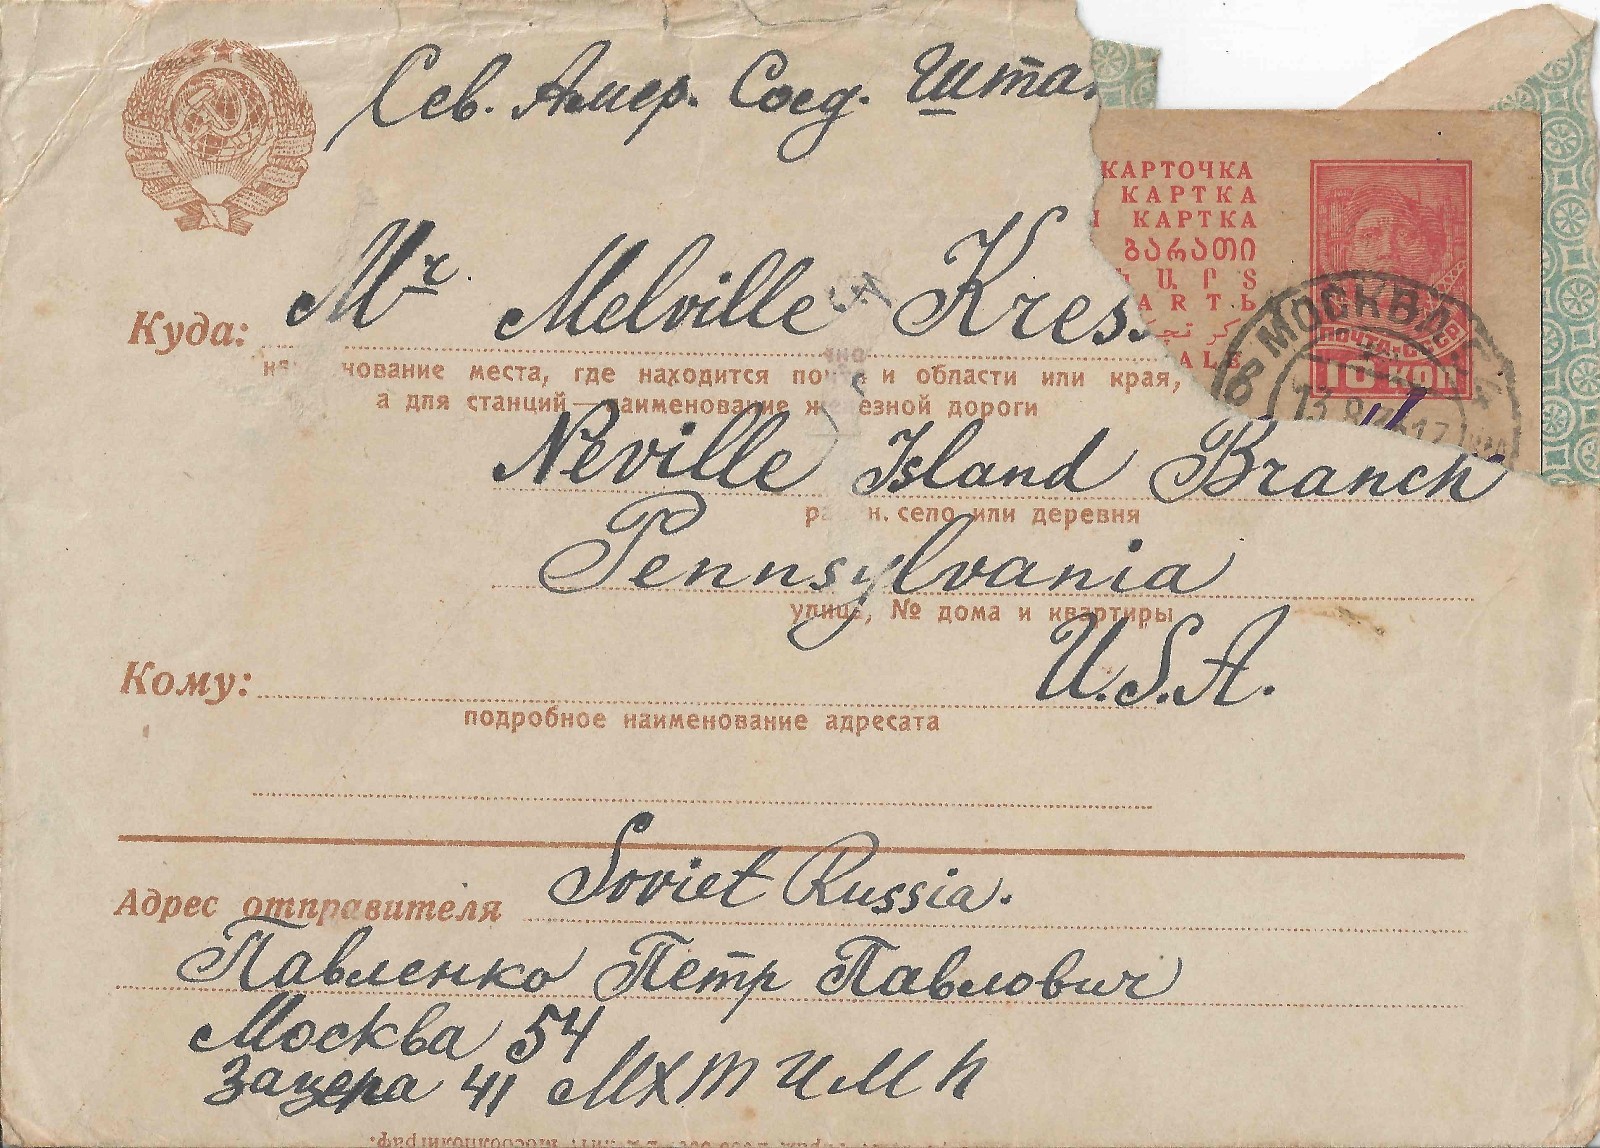 Сев. Амер. Соед. Шта
КАРТОЧКА
КАРТКА
КАРТКА
ბარათი
ARTЬ
ALE
МОСКВА
ПОЧТА СССР
10 КОП
Куда: Mr. Melville Kres
нование места, где находится по и области или края,
а для станций—наименование железной дороги
Neville Island Branch
н. село или деревня
Pennsylvania
улица, № дома и квартиры
U.S.A.
Кому:
подробное наименование адресата
Soviet Russia.
Адрес отправителя
Павленко Петр Павлович
Москва 54
Зацепа 41 МХТИМП